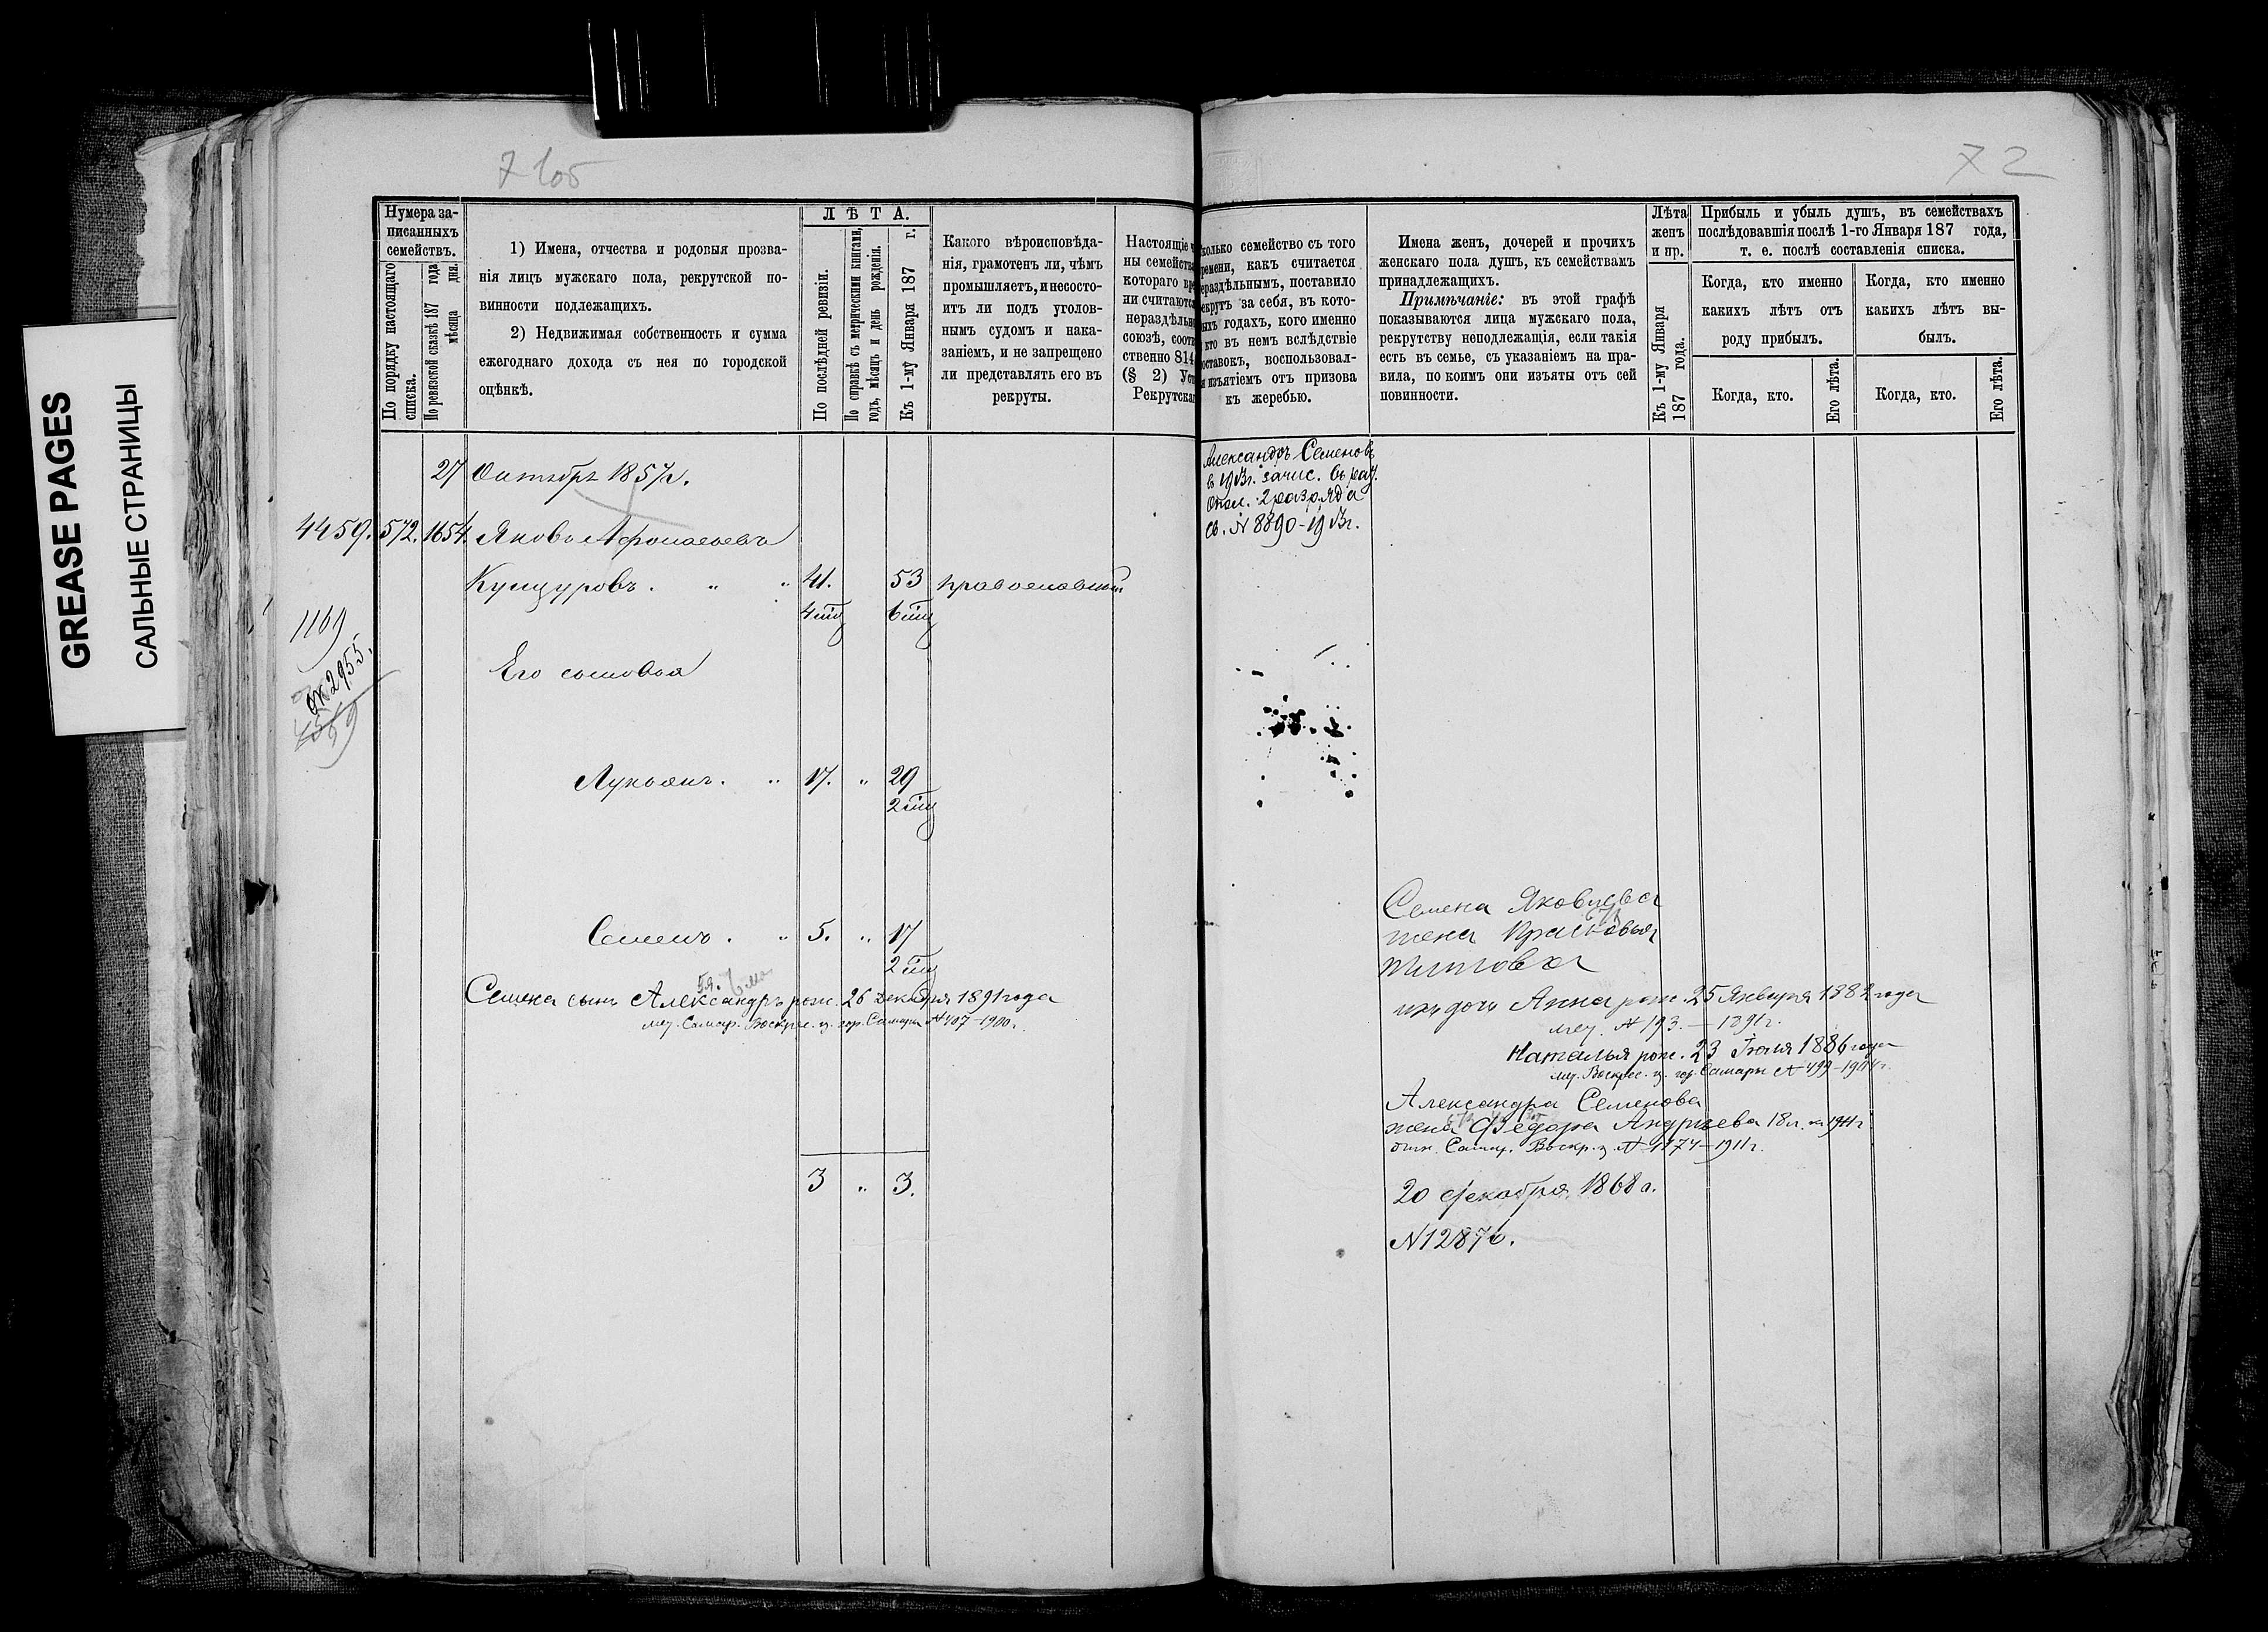 GREASE PAGES
САЛЬНЫЕ СТРАНИЦЫ
7 1об
Нумера за-
писанныхъ
семействъ.
По порядку настоящаго
списка.
По ревизской сказкѣ 187 года
мѣсяца дня.
1) Имена, отчества и родовыя прозва-
нія лицъ мужскаго пола, рекрутской по-
винности подлежащихъ.
2) Недвижимая собственность и сумма
ежегоднаго дохода съ нея по городской
оцѣнкѣ.
ЛѢТА.
По послѣдней ревизіи.
По справкѣ съ метрическими книгами,
годъ, мѣсяцъ и день рожденія.
Къ 1-му Января 187 г.
Какого вѣроисповѣда-
нія, грамотенъ ли, чѣмъ
промышляетъ, и несосто-
итъ ли подъ уголов-
нымъ судомъ и нака-
заніемъ, и не запрещено
ли представлять его въ
рекруты.
Настоящіе
ны семейства
котораго вре
ни считаются
нераздѣльн
союзѣ, соотв
ственно 814
(§ 2) Уст
Рекрутска
27 Октября 1857г.
4459. 572. 1654. Яковъ Афонасьевъ
Кунцуровъ . " " 41. 53 православный
4 6
1169
2955.
Его сыновья
Лукьянъ . " 17. " 29
2
Семенъ . " 5. " 17
2
Семена сынъ Александръ рож. 26 декабря 1891 года
мет. Самар. Воскрес. ц. гор. Самары № 407-1900г.
3 " 3.
72
колько семейство съ того
ремени, какъ считается
ераздѣльнымъ, поставило
екрутъ за себя, въ кото-
ыхъ годахъ, кого именно
кто въ немъ вслѣдствіе
оставокъ, воспользовал-
я изъятіемъ отъ призова
къ жеребью.
Имена женъ, дочерей и прочихъ
женскаго пола душъ, къ семействамъ
принадлежащихъ.
Примѣчаніе: въ этой графѣ
показываются лица мужскаго пола,
рекрутству неподлежащія, если такія
есть въ семье, съ указаніемъ на пра-
вила, по коимъ они изъяты отъ сей
повинности.
Лѣта
женъ
и пр.
Къ 1-му Января
187 года.
Прибыль и убыль душъ, въ семействахъ
послѣдовавшія послѣ 1-го Января 187 года,
т. е. послѣ составленія списка.
Когда, кто именно
какихъ лѣтъ отъ
роду прибылъ.
Когда, кто именно
какихъ лѣтъ вы-
былъ.
Когда, кто.
Его лѣта.
Когда, кто.
Его лѣта.
Александръ Семеновъ
въ 1913г. зачис. въ рат.
Опол. 2 разряда
св. № 8890-1913г.
Семена Яковлева
жена Прасковья
Титова
ихъ дочь Анна рож. 25 Января 1882 года
мет. № 193. — 1891г.
Наталья рож. 23 Іюля 1886 года
мет. Воскрес. ц. гор. Самары № 499-1904г.
Александра Семенова
жена Федора Андреева 18л. въ 1911г
Самар. Воскр. ц. № 1174-1911г.
20 декабря 1868 г.
№ 12876.